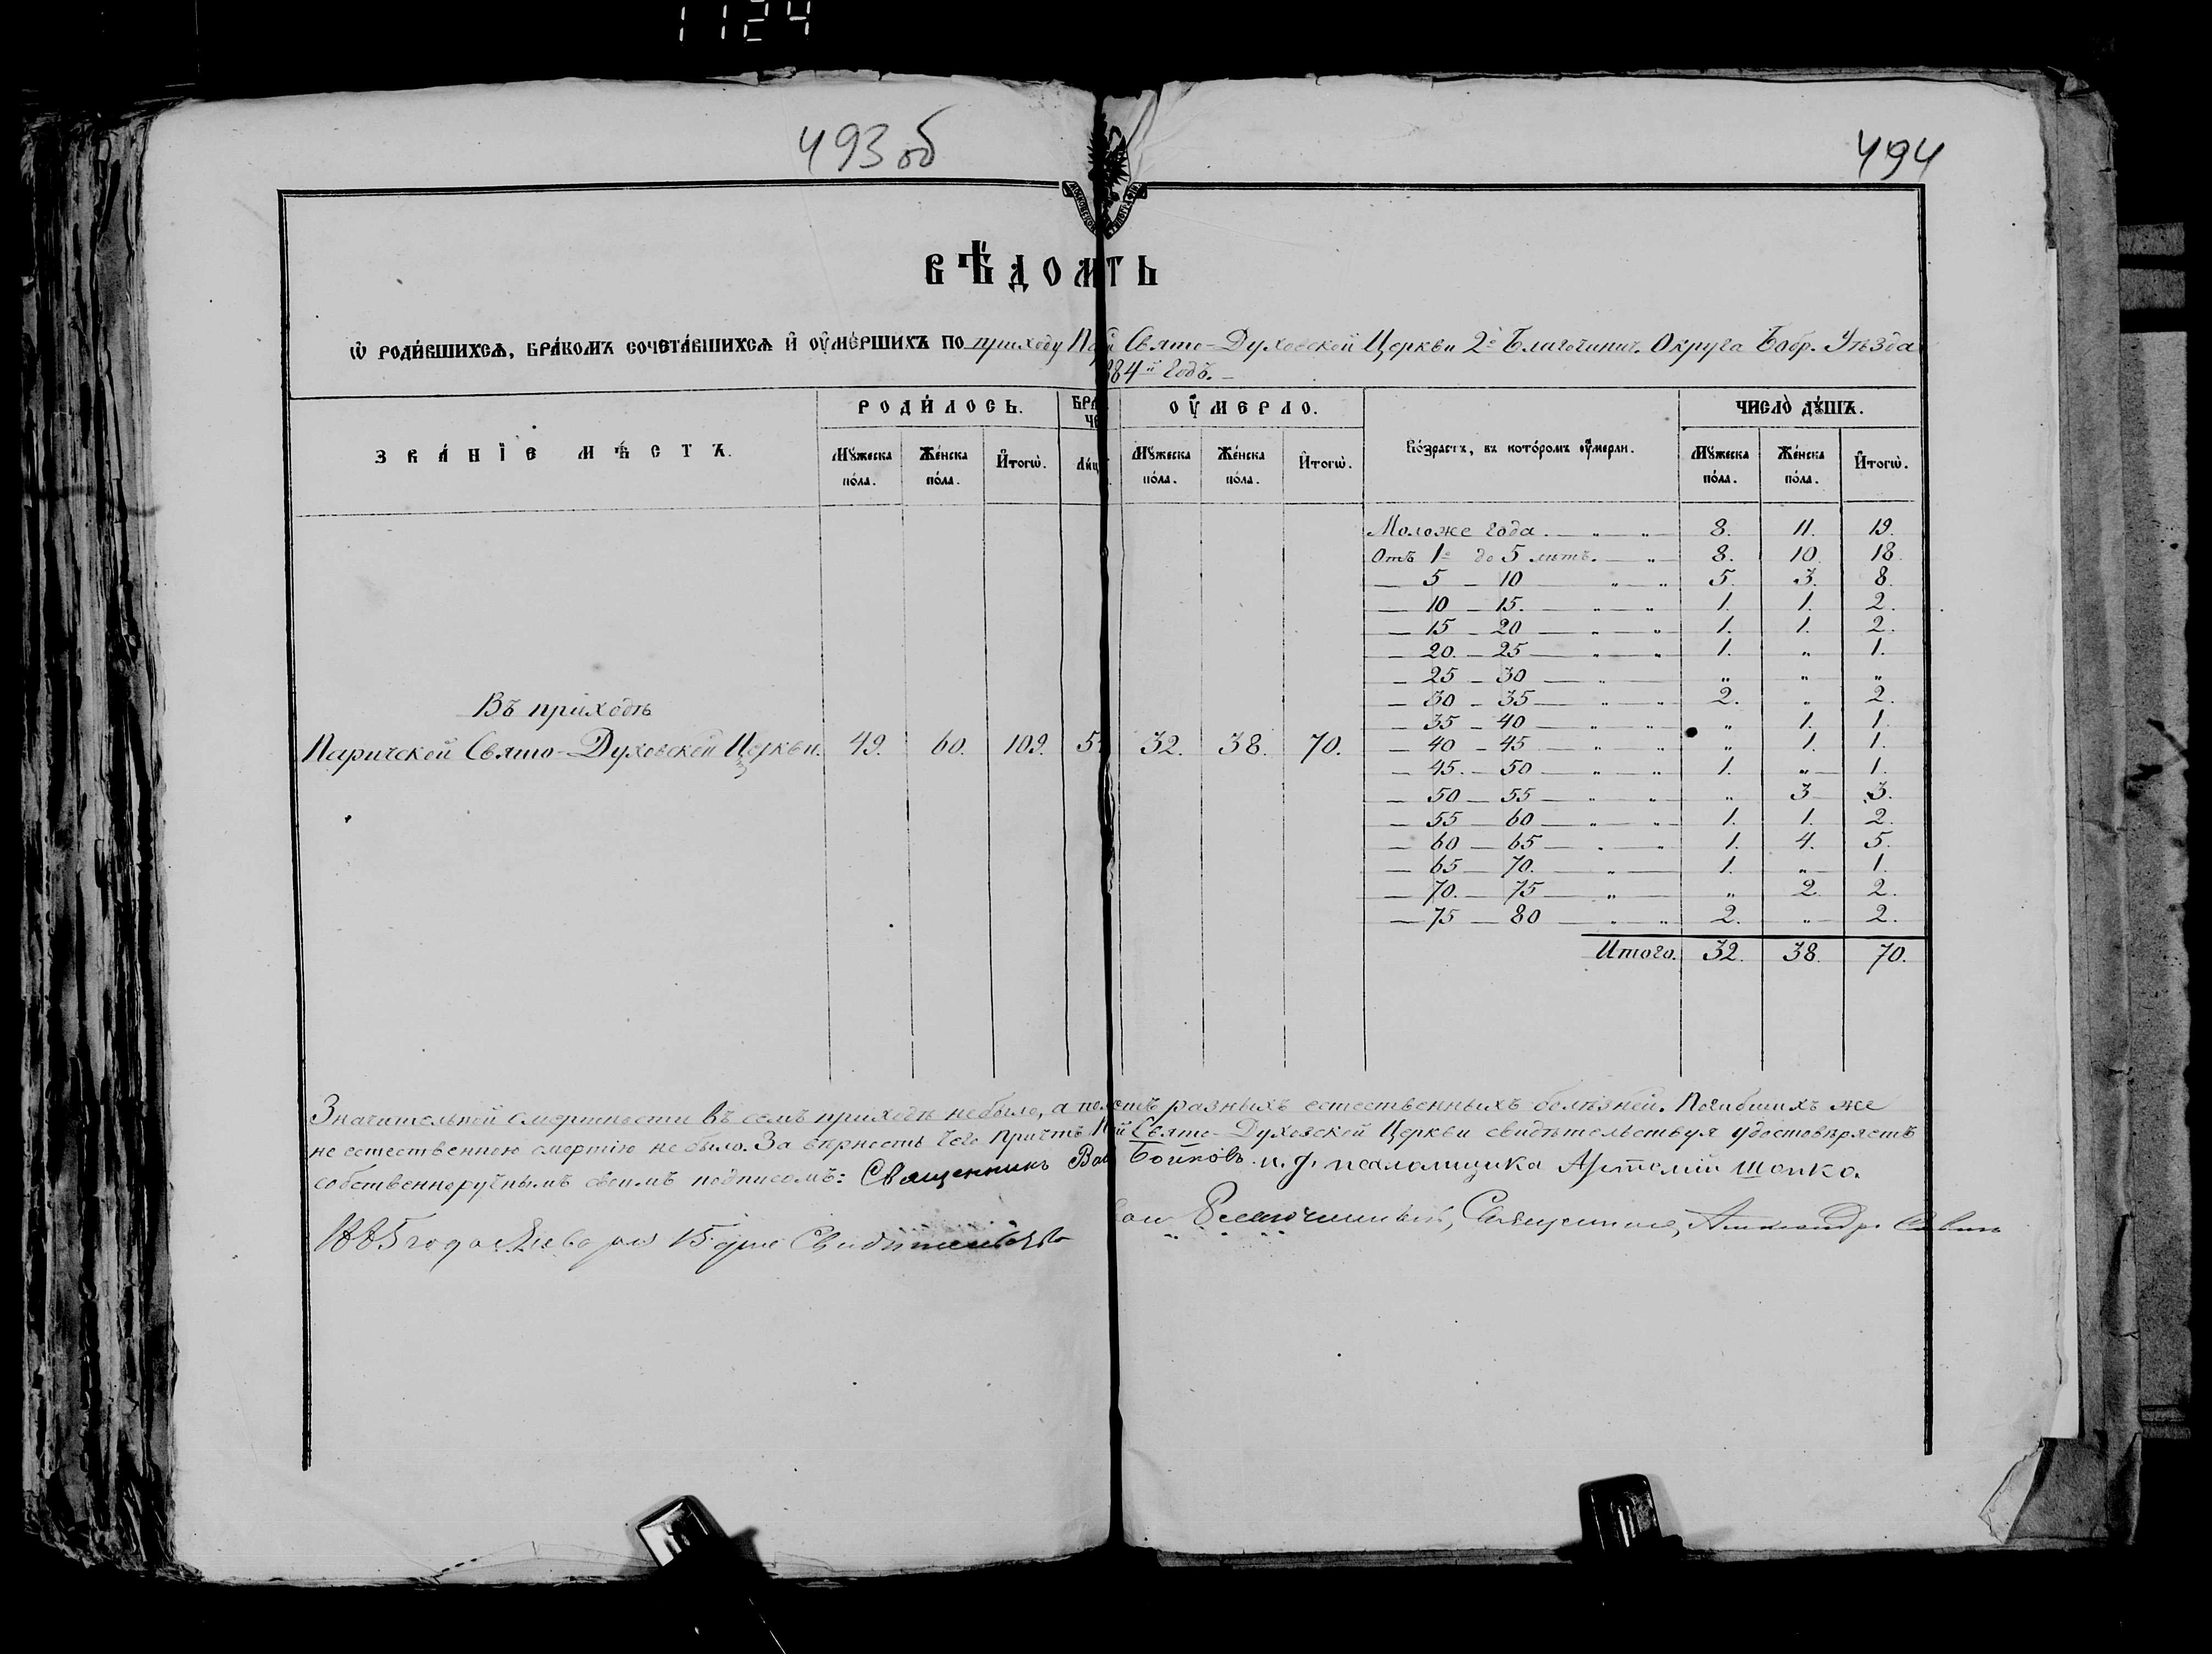 1124
493 об
494
ВѢДОМТЬ
Ѡ РОДИ́ВШИХСѦ, БРА́КОМЪ СОЧЕТА́ВШИХСѦ И҆ ОУ҆МЕ́РШИХЪ ПО приходу Свято-Духовской Церкви 2º Благочинич. Округа Бобр. Уѣзда
884й годъ.
ЗВА́НІЕ МѢ́СТЪ.
РОДИ́ЛОСЬ.
ОУ҆́МЕРЛО.
Во́зрастъ, въ кото́ромъ ᲂу҆́мерли.
ЧИСЛО̀ ДꙊ́ШЪ.
Мꙋ́жеска по́ла. Же́нска по́ла. И҆тогѡ̀.
Мꙋ́жеска по́ла. Же́нска по́ла. И҆тогѡ̀.
Мꙋ́жеска по́ла. Же́нска по́ла. И҆тогѡ̀.
Въ приходѣ
Паричской Свято-Духовской Церкви. 49. 60. 109. 5 32. 38. 70.
Моложе года. — „ — „ 8. 11. 19.
Отъ 1º до 5 лѣтъ. — „ 8. 10. 18.
— 5 — 10 „ — „ 5. 3. 8.
— 10 — 15. — „ — „ 1. 1. 2.
— 15 — 20 — „ — „ 1. 1. 2.
— 20. — 25 — „ — „ 1. „ 1.
— 25 — 30 — „ — „ „ „
— 30 — 35 — „ — „ 2. „ 2.
— 35 — 40 — „ — „ „ 1. 1.
— 40 — 45 — „ — „ „ 1. 1.
— 45. — 50 — „ — „ 1. „ 1.
— 50 — 55 — „ — „ „ 3 3.
— 55 — 60 — „ — „ 1. 1. 2.
— 60 — 65 — „ — „ 1. 4. 5.
— 65 — 70. — „ — 1. „ 1.
— 70. — 75 — „ — „ 2. 2.
— 75 — 80 — „ — „ 2. „ 2.
Итого. 32. 38. 70.
Значительной смертности въ семъ приходѣ небыло, а разныхъ естественныхъ болѣзней. Погибшихъ же
не естественною смертію не было. За вѣрность чего Причтъ Свято-Духовской Церкви свидѣтельствуя удостовѣряетъ
собственноручнымъ своимъ подписомъ: Священникъ Бѡйковъ. и. д. псаломщика Артемій Шопко.
1885 года Января 15 дня Священникъ, Александръ